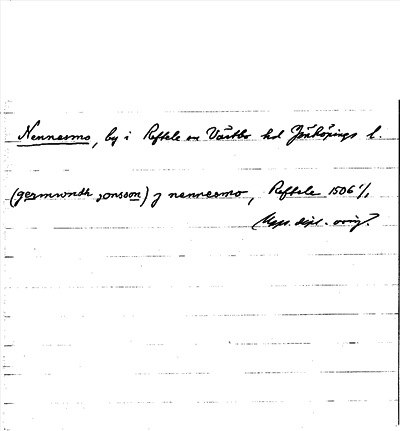 Nennesmo, by i Reftele sn Västbo hd Jönköpings l.
(germwndh jonsson) j nennesmo, Reftele 1506
dipl. orig.